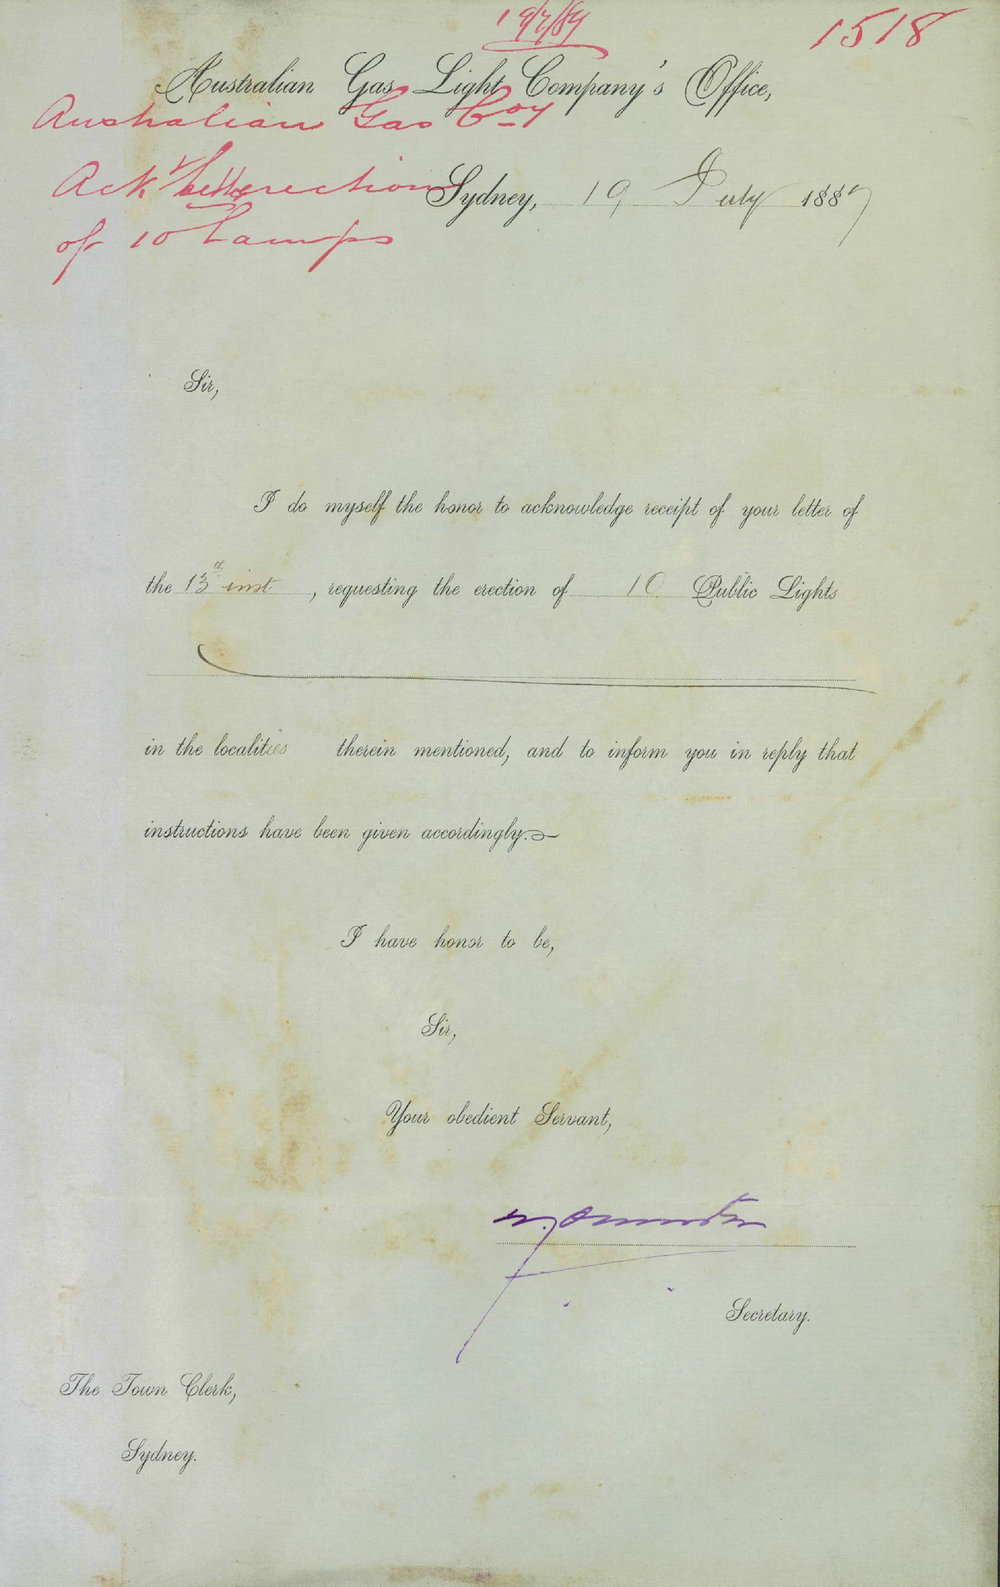 19/7/89
1518
Australian Gas Light Company's Office,
Australian Gas Coy
Ack r letter erection
of 10 Lamps
Sydney, 19 July 1889
Sir,
I do myself the honor to acknowledge receipt of your letter of
the 13th inst, requesting the erection of 10 Public Lights
in the localities therein mentioned, and to inform you in reply that
instructions have been given accordingly.
I have honor to be,
Sir,
Your obedient Servant,
Secretary.
The Town Clerk,
Sydney.